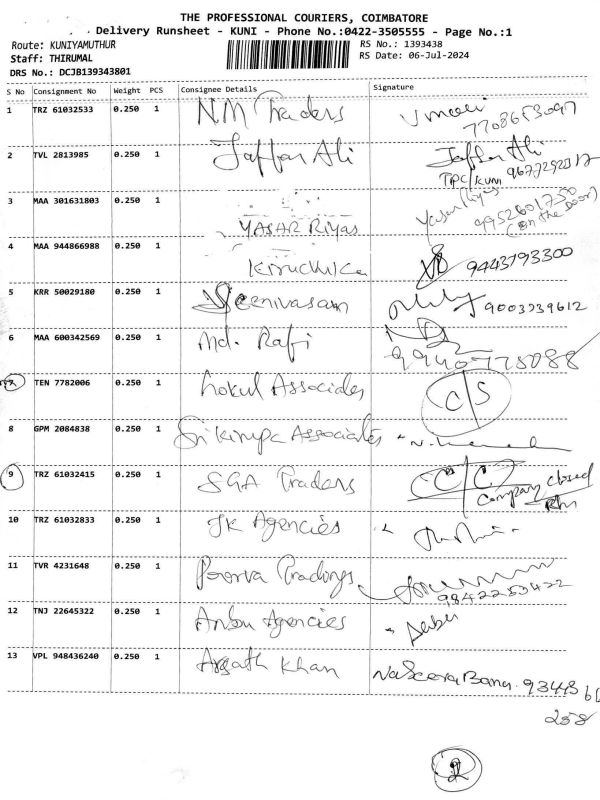 THE PROFESSIONAL COURIERS, COIMBATORE
Delivery Runsheet - KUNI - Phone No.:0422-3505555 - Page No.:1
Route: KUNIYAMUTHUR RS No.: 1393438
Staff: THIRUMAL RS Date: 06-Jul-2024
DRS No.: DCJB139343801
S No Consignment No Weight PCS Consignee Details Signature
1 TRZ 61032533 0.250 1 NM Traders
2 TVL 2813985 0.250 1 Jaffar Ali Jaffar Ali
TPC/KUNI
3 MAA 301631803 0.250 1 YASAR RIYAS
(on the Door)
4 MAA 944866988 0.250 1 9443793300
5 KRR 50029180 0.250 1 Sreenivasam 9003939612
6 MAA 600342569 0.250 1 Md. Rafi
9940775088
7 TEN 7782006 0.250 1 Gokul Associates C/S
8 GPM 2084838 0.250 1 Sri Kirupa Associates
9 TRZ 61032415 0.250 1 SGA Traders C/C
Company closed
10 TRZ 61032833 0.250 1 JK Agencies
11 TVR 4231648 0.250 1 Poorva Tradings
9842253422
12 TNJ 22645322 0.250 1 Anbu Agencies
13 VPL 948436240 0.250 1 Argath Khan Naseera Banu. 93443 61
258
2